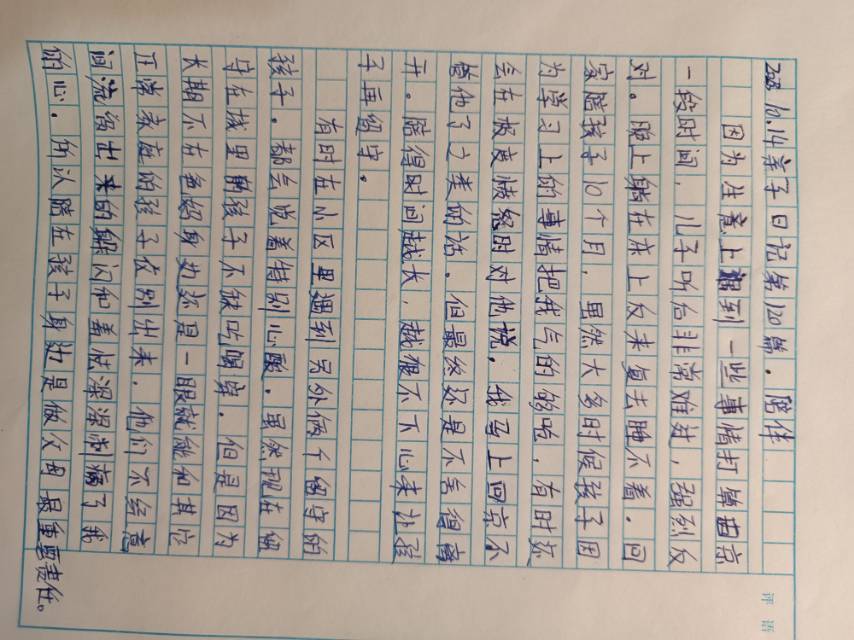 2023 10.14亲子日记第120篇. 陪伴
因为生意上遇到一些事情打算回京
一段时间,儿子听后非常难过,强烈反
对。晚上躺在床上反来复去睡不着.回
家陪孩子10个月,虽然大多时候孩子因
为学习上的事情把我气的够呛,有时亦
会在极度愤怒时对他说,我马上回京不
管他了之类的话.但最终还是不舍得离
开.陪得时间越长,越狠不下心来让孩
子再留守.
有时在小区里遇到另外俩个留守的
孩子.都会觉着特别心酸.虽然现在留
守在城里的孩子不缺吃喝穿.但是因为
长期不在爸妈身边还是一眼就能和其它
正常家庭的孩子区别出来.他们不经意
间流留出来的躲闪和羞怯深深刺痛了我
的心.所以陪在孩子身边是做父母最重要责任。
评语